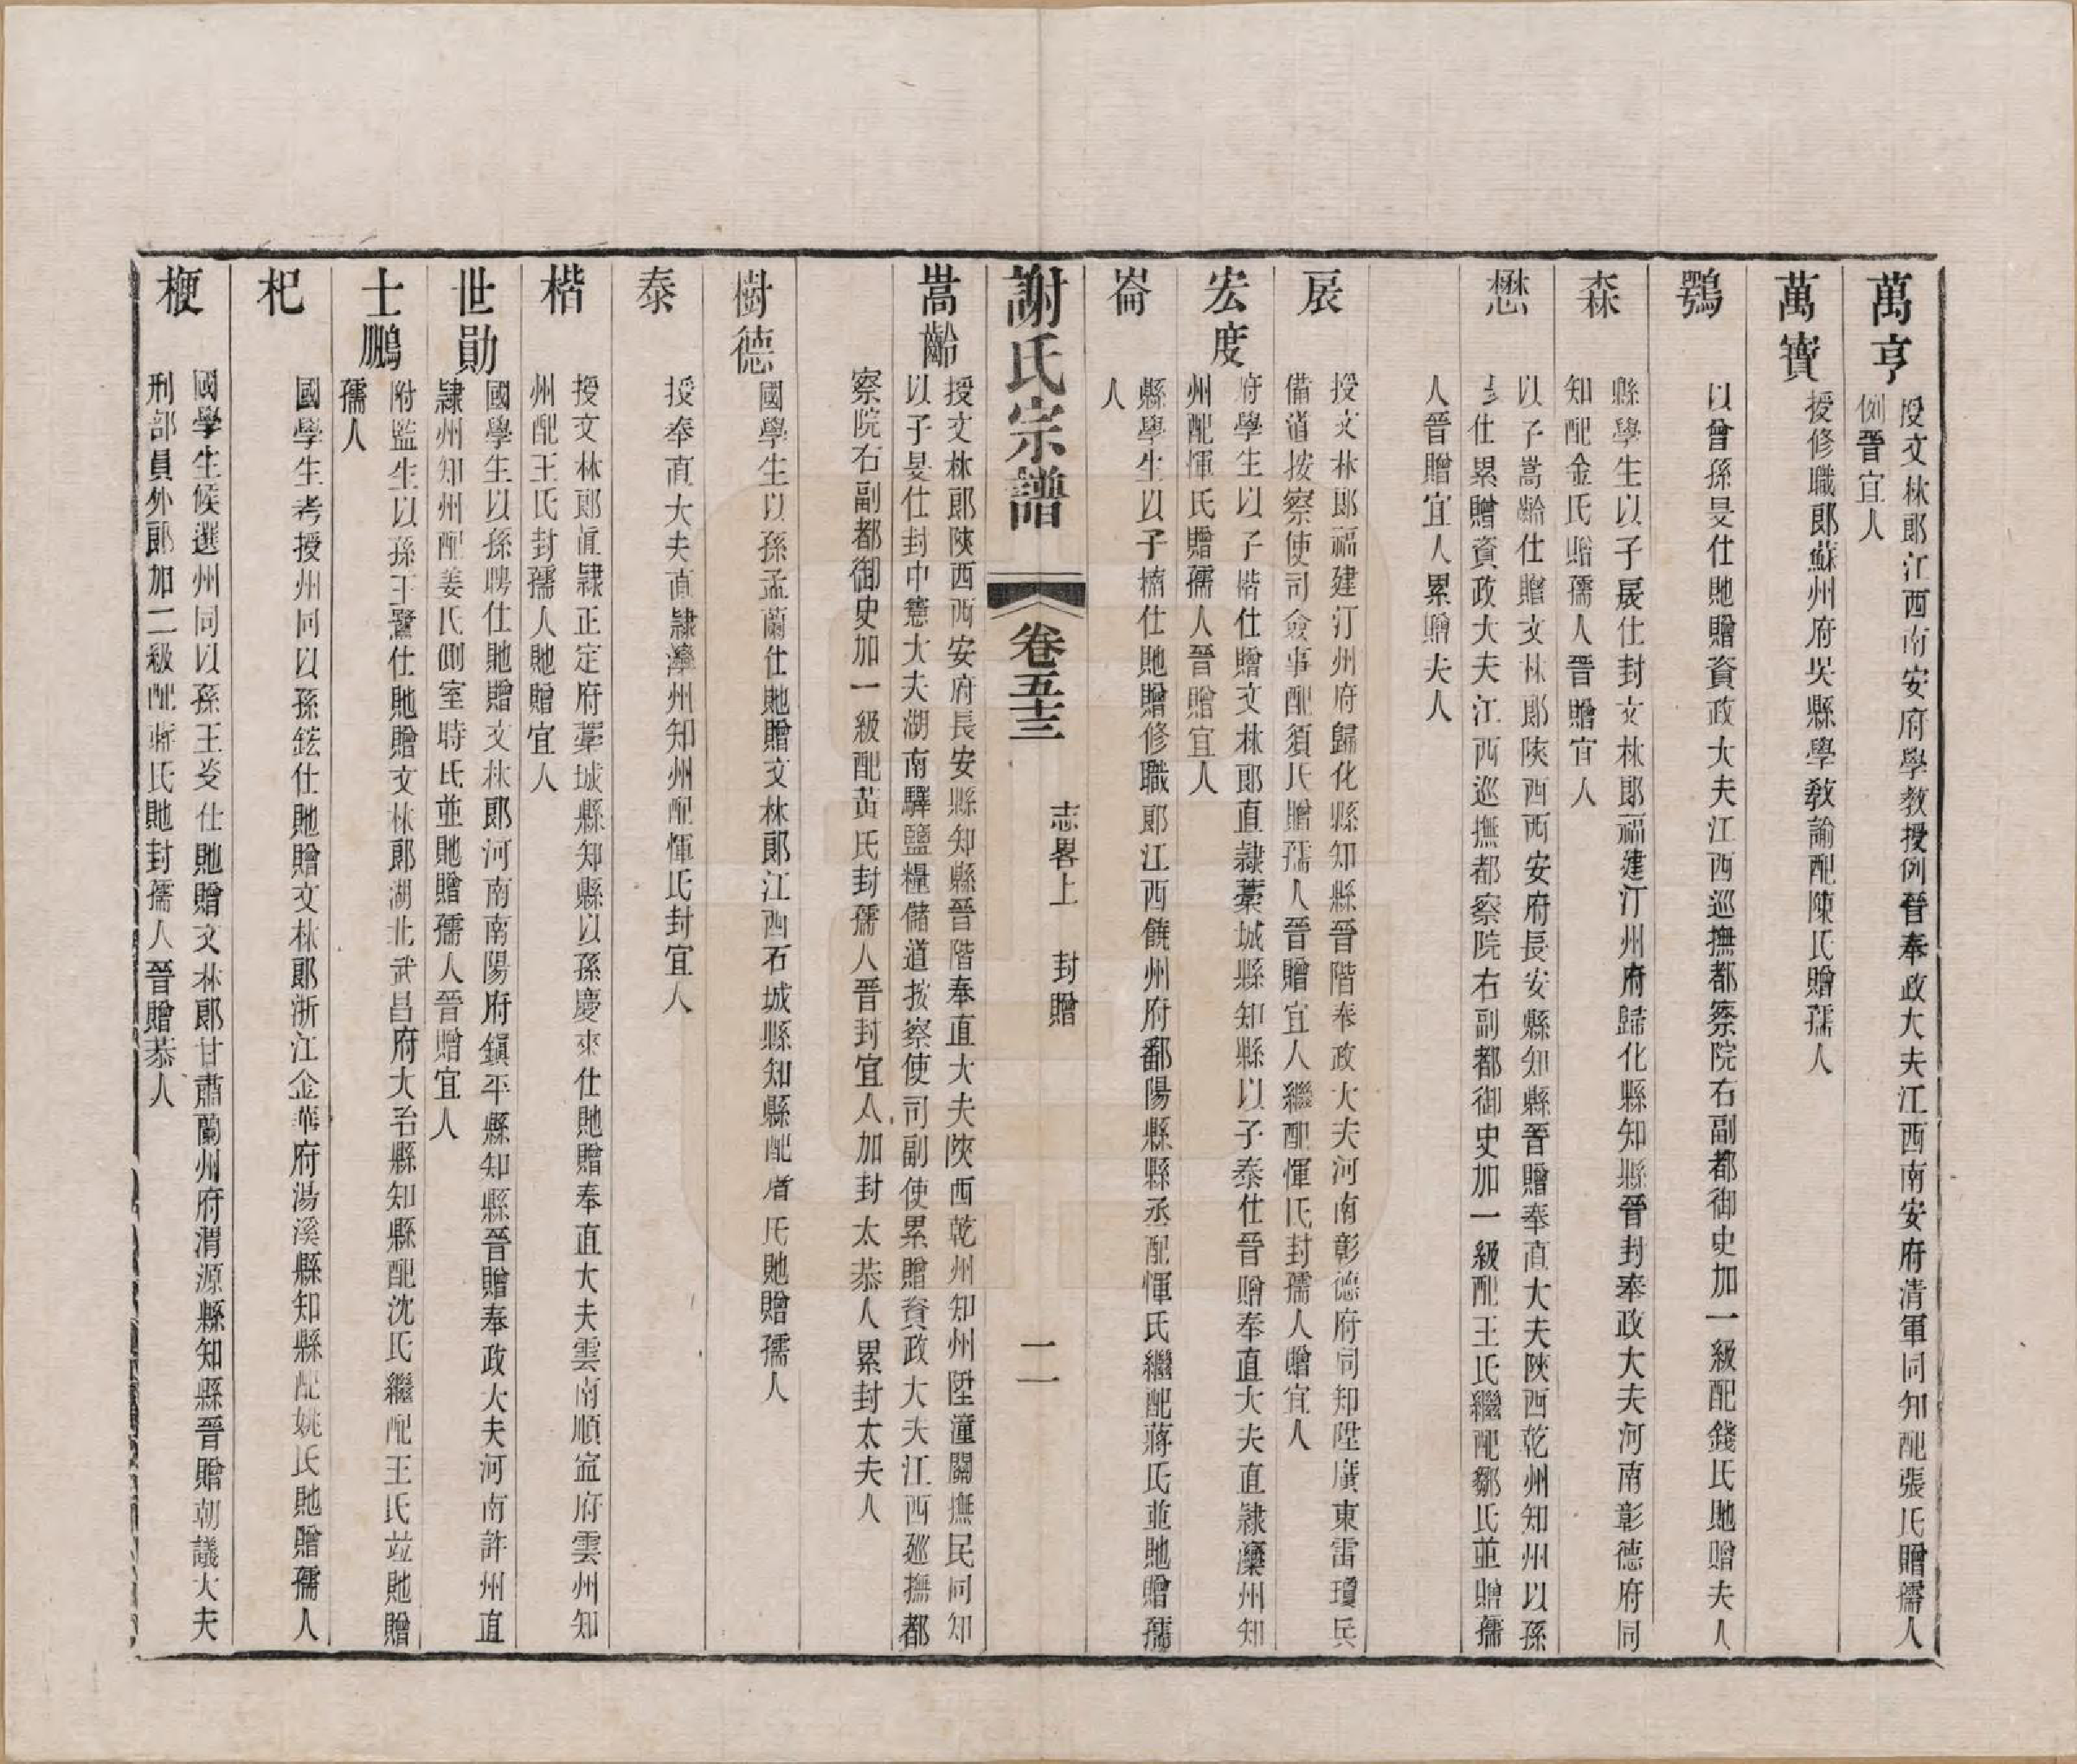 萬亨
授文林郎江西南安府學教授例晉奉政大夫江西南安府清軍同知配張氏贈孺人
例晉宜人
萬寶
授修職郎蘇州府吳縣學敎諭配陳氏贈孺人
鶚
以曾孫旻仕貤贈資政大夫江西巡撫都察院右副都御史加一級配錢氏貤贈夫人
森
縣學生以子展仕封文林郎福建汀州府歸化縣知縣晉封奉政大夫河南彰德府同
知配金氏贈孺人晉贈宜人
懋
以子嵩齡仕贈文林郎陝西西安府長安縣知縣晉贈奉直大夫陝西乾州知州以孫
旻仕累贈資政大夫江西巡撫都察院右副都御史加一級配王氏繼配鄒氏並贈孺
人晉贈宜人累贈夫人
展
授文林郎福建汀州府歸化縣知縣晉階奉政大夫河南彰德府同知陞廣東雷瓊兵
備道按察使司僉事配須氏贈孺人晉贈宜人繼配惲氏封孺人贈宜人
宏度
府學生以子楷仕贈文林郎直隸藁城縣知縣以子泰仕晉贈奉直大夫直隸灤州知
州配惲氏贈孺人晉贈宜人
崙
縣學生以子楠仕貤贈修職郎江西饒州府鄱陽縣縣丞配惲氏繼配蔣氏並貤贈孺
人
謝氏宗譜
卷五十三
志畧上 封贈
二
嵩齡
授文林郎陝西西安府長安縣知縣晉階奉直大夫陝西乾州知州陞潼關撫民同知
以子旻仕封中憲大夫湖南驛鹽糧儲道按察使司副使累贈資政大夫江西廵撫都
察院右副都御史加一級配黃氏封孺人晉封宜人加封太恭人累封太夫人
樹德
國學生以孫孟蘭仕貤贈文林郎江西石城縣知縣配屠氏貤贈孺人
泰
授奉直大夫直隸灤州知州配惲氏封宜人
楷
授文林郎直隸正定府藁城縣知縣以孫慶來仕貤贈奉直大夫雲南順寧府雲州知
州配王氏封孺人貤贈宜人
世勛
國學生以孫聘仕貤贈文林郎河南南陽府鎭平縣知縣晉贈奉政大夫河南許州直
隸州知州配姜氏側室時氏並貤贈孺人晉贈宜人
士鵬
附監生以孫玉鷺仕貤贈文林郎湖北武昌府大冶縣知縣配沈氏繼配王氏竝貤贈
孺人
杞
國學生考授州同以孫鋐仕貤贈文林郎浙江金華府湯溪縣知縣配姚氏貤贈孺人
梗
國學生候選州同以孫王㚑仕貤贈文林郎甘肅蘭州府渭源縣知縣晉贈朝議大夫
刑部員外郎加二級配蔣氏貤封孺人晉贈恭人